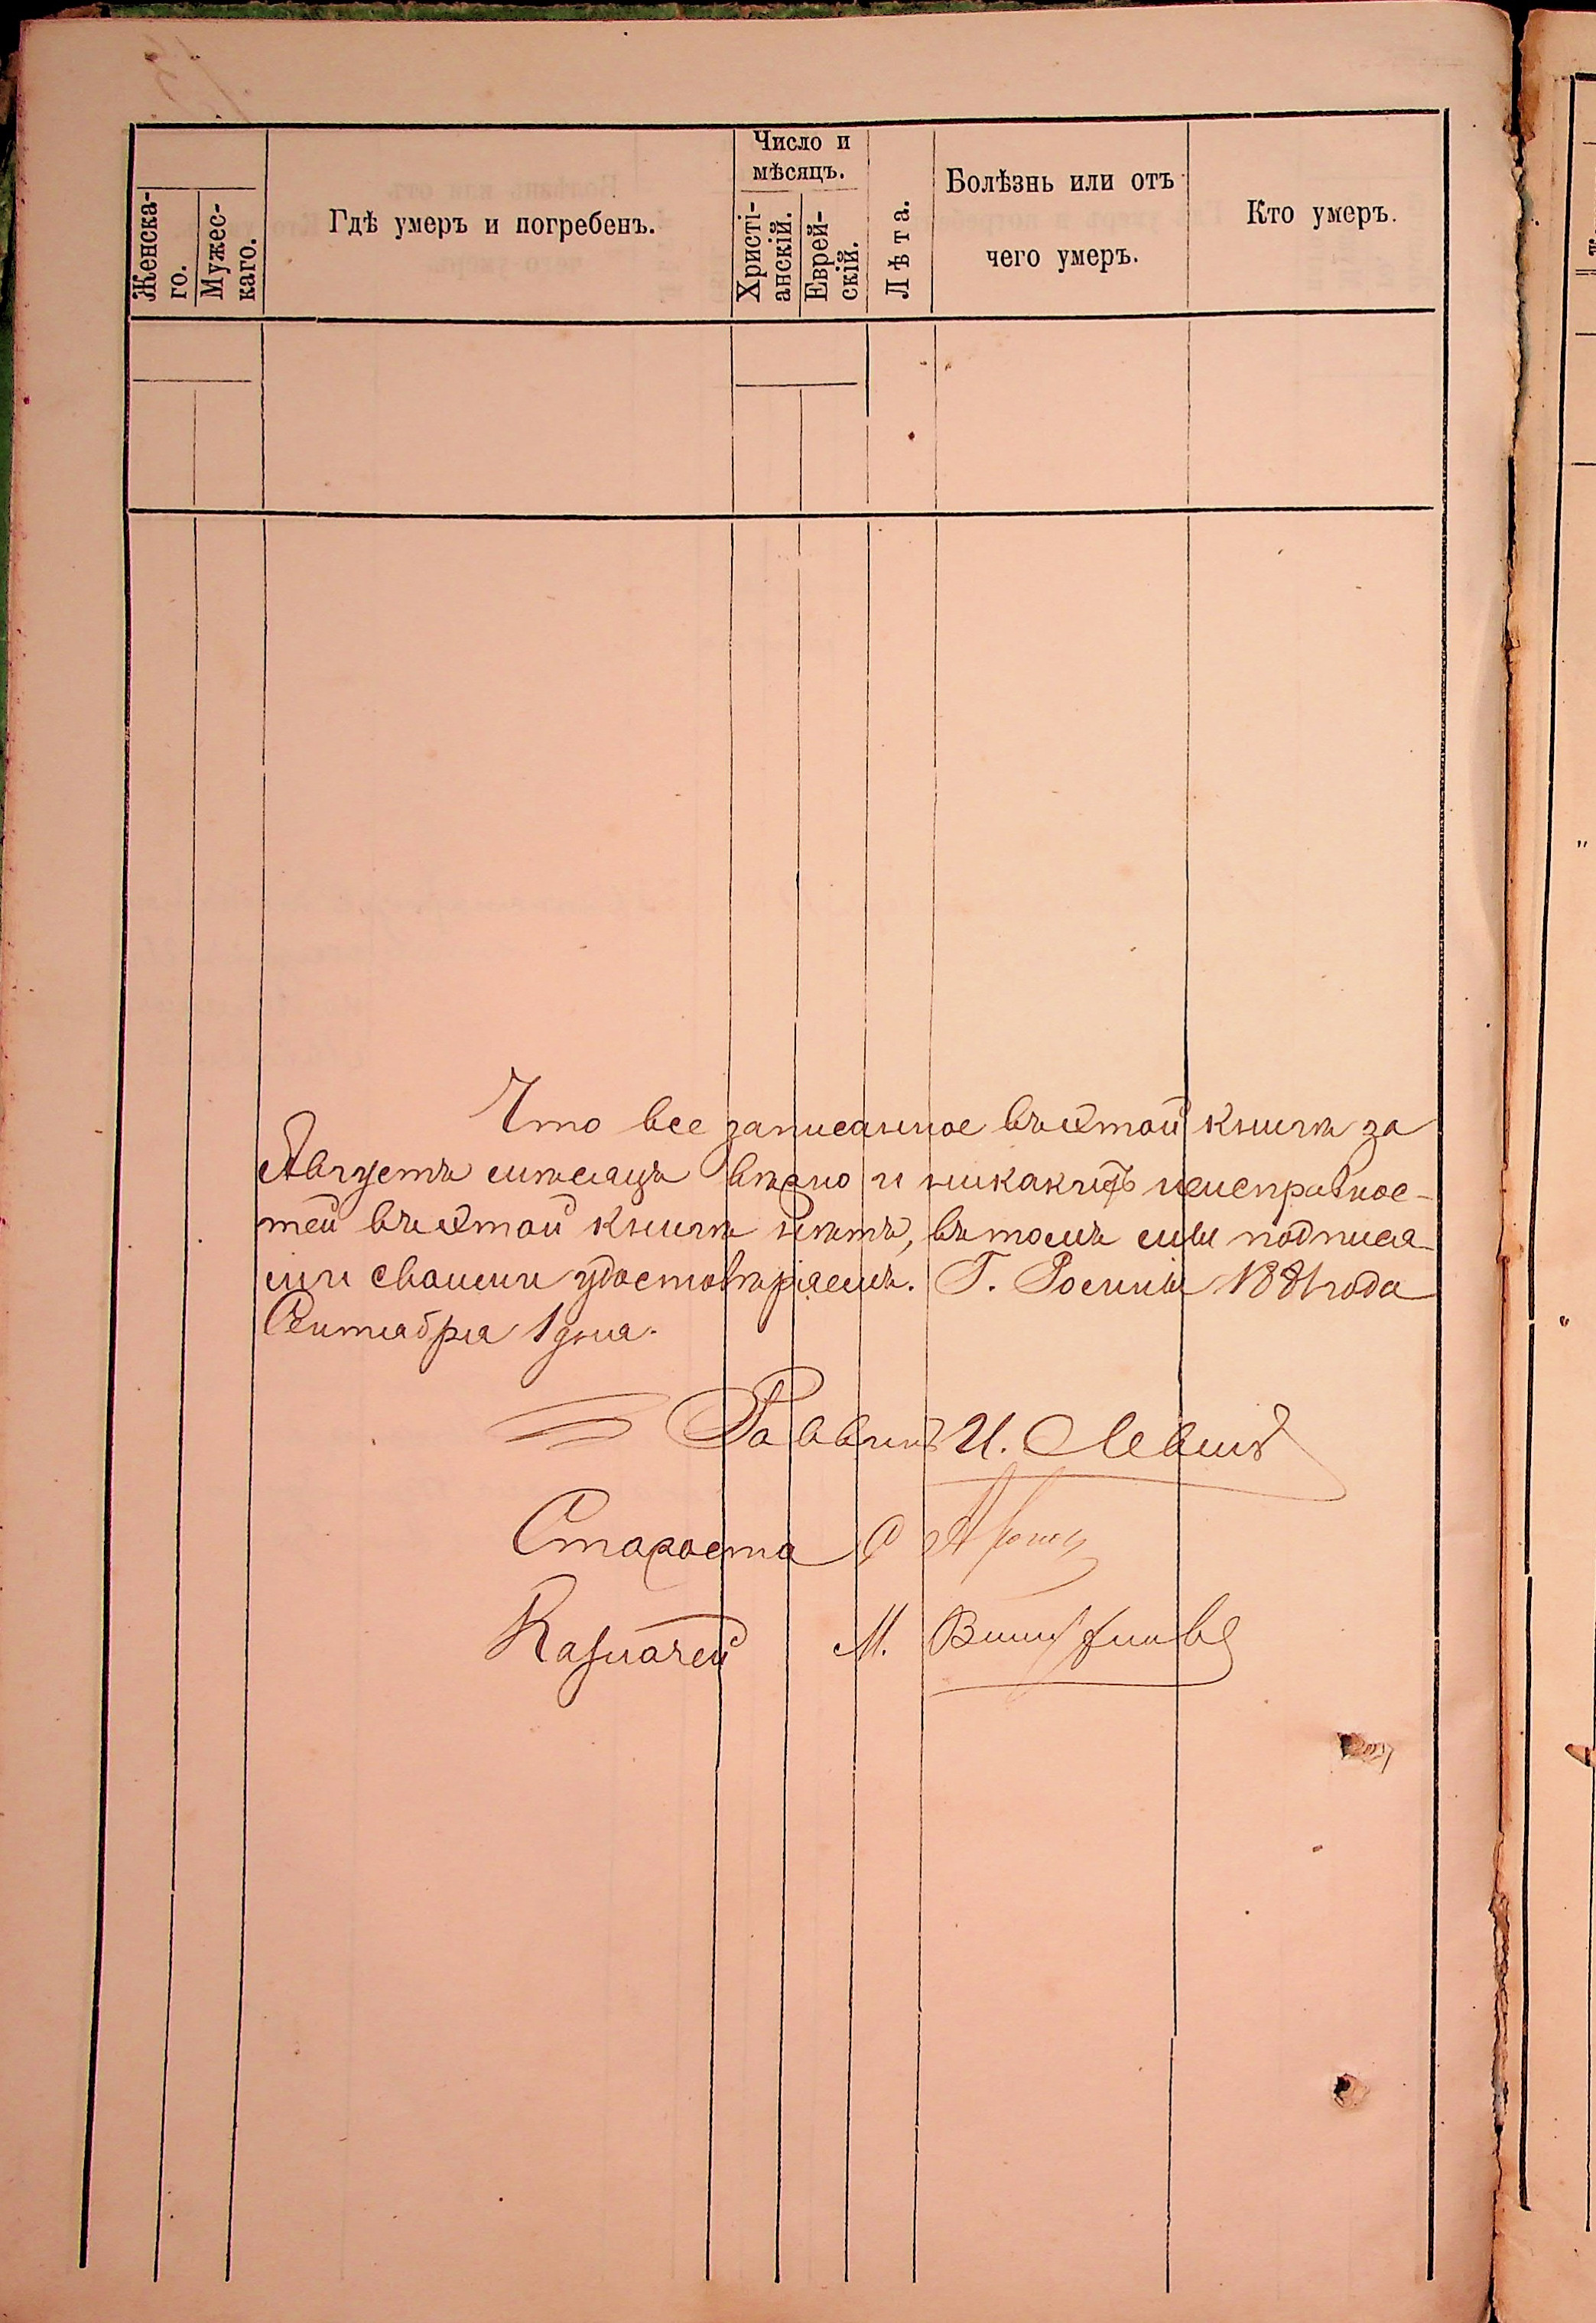 Женска-
го.
Мужес-
каго.
Гдѣ умеръ и погребенъ.
Число и
мѣсяцъ.
Христі-
анскій.
Еврей-
скій.
Лѣта.
Болѣзнь или отъ
чего умеръ.
Кто умеръ.
Что все записанное въ этой книгѣ за
Августъ мѣсяцъ вѣрно и никакихъ неисправнос-
тей въ этой книгѣ нѣтъ, въ томъ мы подписа-
ми своими удостовѣряемъ. Г. Россіены 1881 года
Сентября 1 дня.
Раввинъ И. Левинъ
Староста
Казначей М.